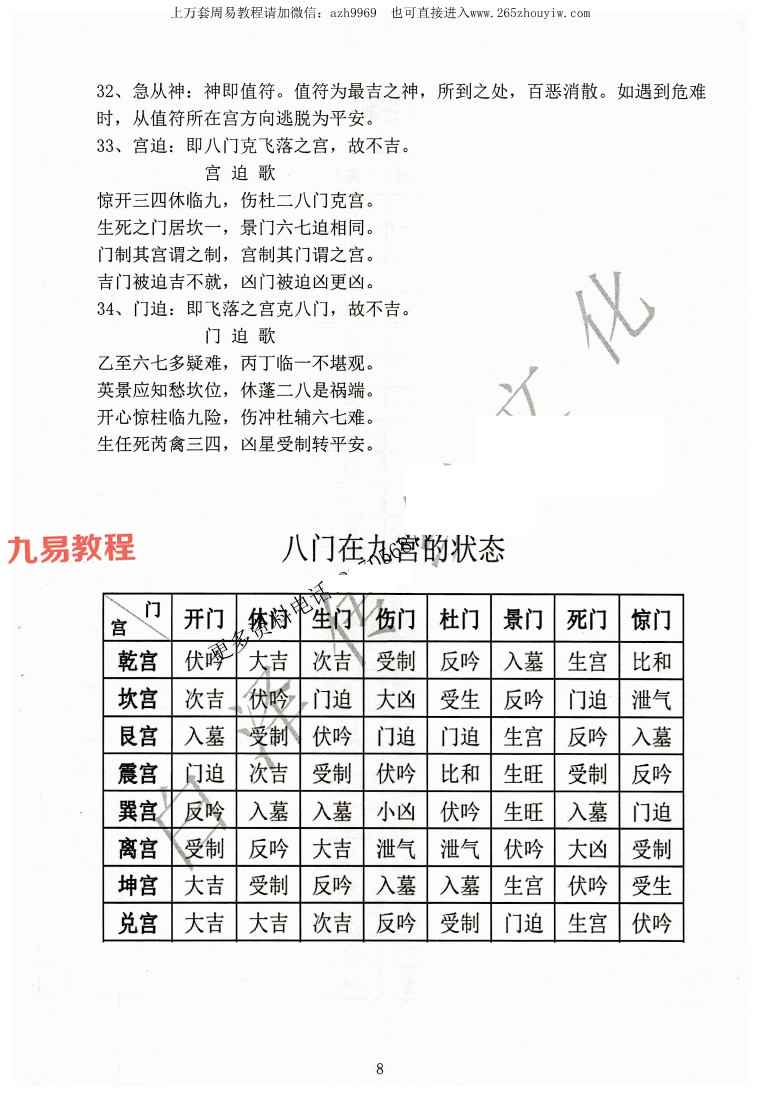 上万套周易教程请加微信: azh9969 也可直接进入www.265zhouyiw.com
32、急从神：神即值符。值符为最吉之神，所到之处，百恶消散。如遇到危难
时，从值符所在宫方向逃脱为平安。
33、宫迫：即八门克飞落之宫，故不吉。
宫 迫 歌
惊开三四休临九，伤杜二八门克宫。
生死之门居坎一，景门六七迫相同。
门制其宫谓之制，宫制其门谓之宫。
吉门被迫吉不就，凶门被迫凶更凶。
34、门迫：即飞落之宫克八门，故不吉。
门 迫 歌
乙至六七多疑难，丙丁临一不堪观。
英景应知愁坎位，休蓬二八是祸端。
开心惊柱临九险，伤冲杜辅六七难。
生任死芮禽三四，凶星受制转平安。
九易教程
八门在九宫的状态
门 宫 开门 休门 生门 伤门 杜门 景门 死门 惊门
乾宫 伏吟 大吉 次吉 受制 反吟 入墓 生宫 比和
坎宫 次吉 伏吟 门迫 大凶 受生 反吟 门迫 泄气
艮宫 入墓 受制 伏吟 门迫 门迫 生宫 反吟 入墓
震宫 门迫 次吉 受制 伏吟 比和 生旺 受制 反吟
巽宫 反吟 入墓 入墓 小凶 伏吟 生旺 入墓 门迫
离宫 受制 反吟 大吉 泄气 泄气 伏吟 大凶 受制
坤宫 大吉 受制 反吟 入墓 入墓 生宫 伏吟 受生
兑宫 大吉 大吉 次吉 反吟 受制 门迫 生宫 伏吟
更多资料电话
白泽 化
8